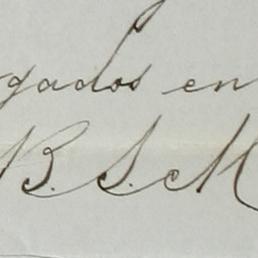 gados en
B. S. M